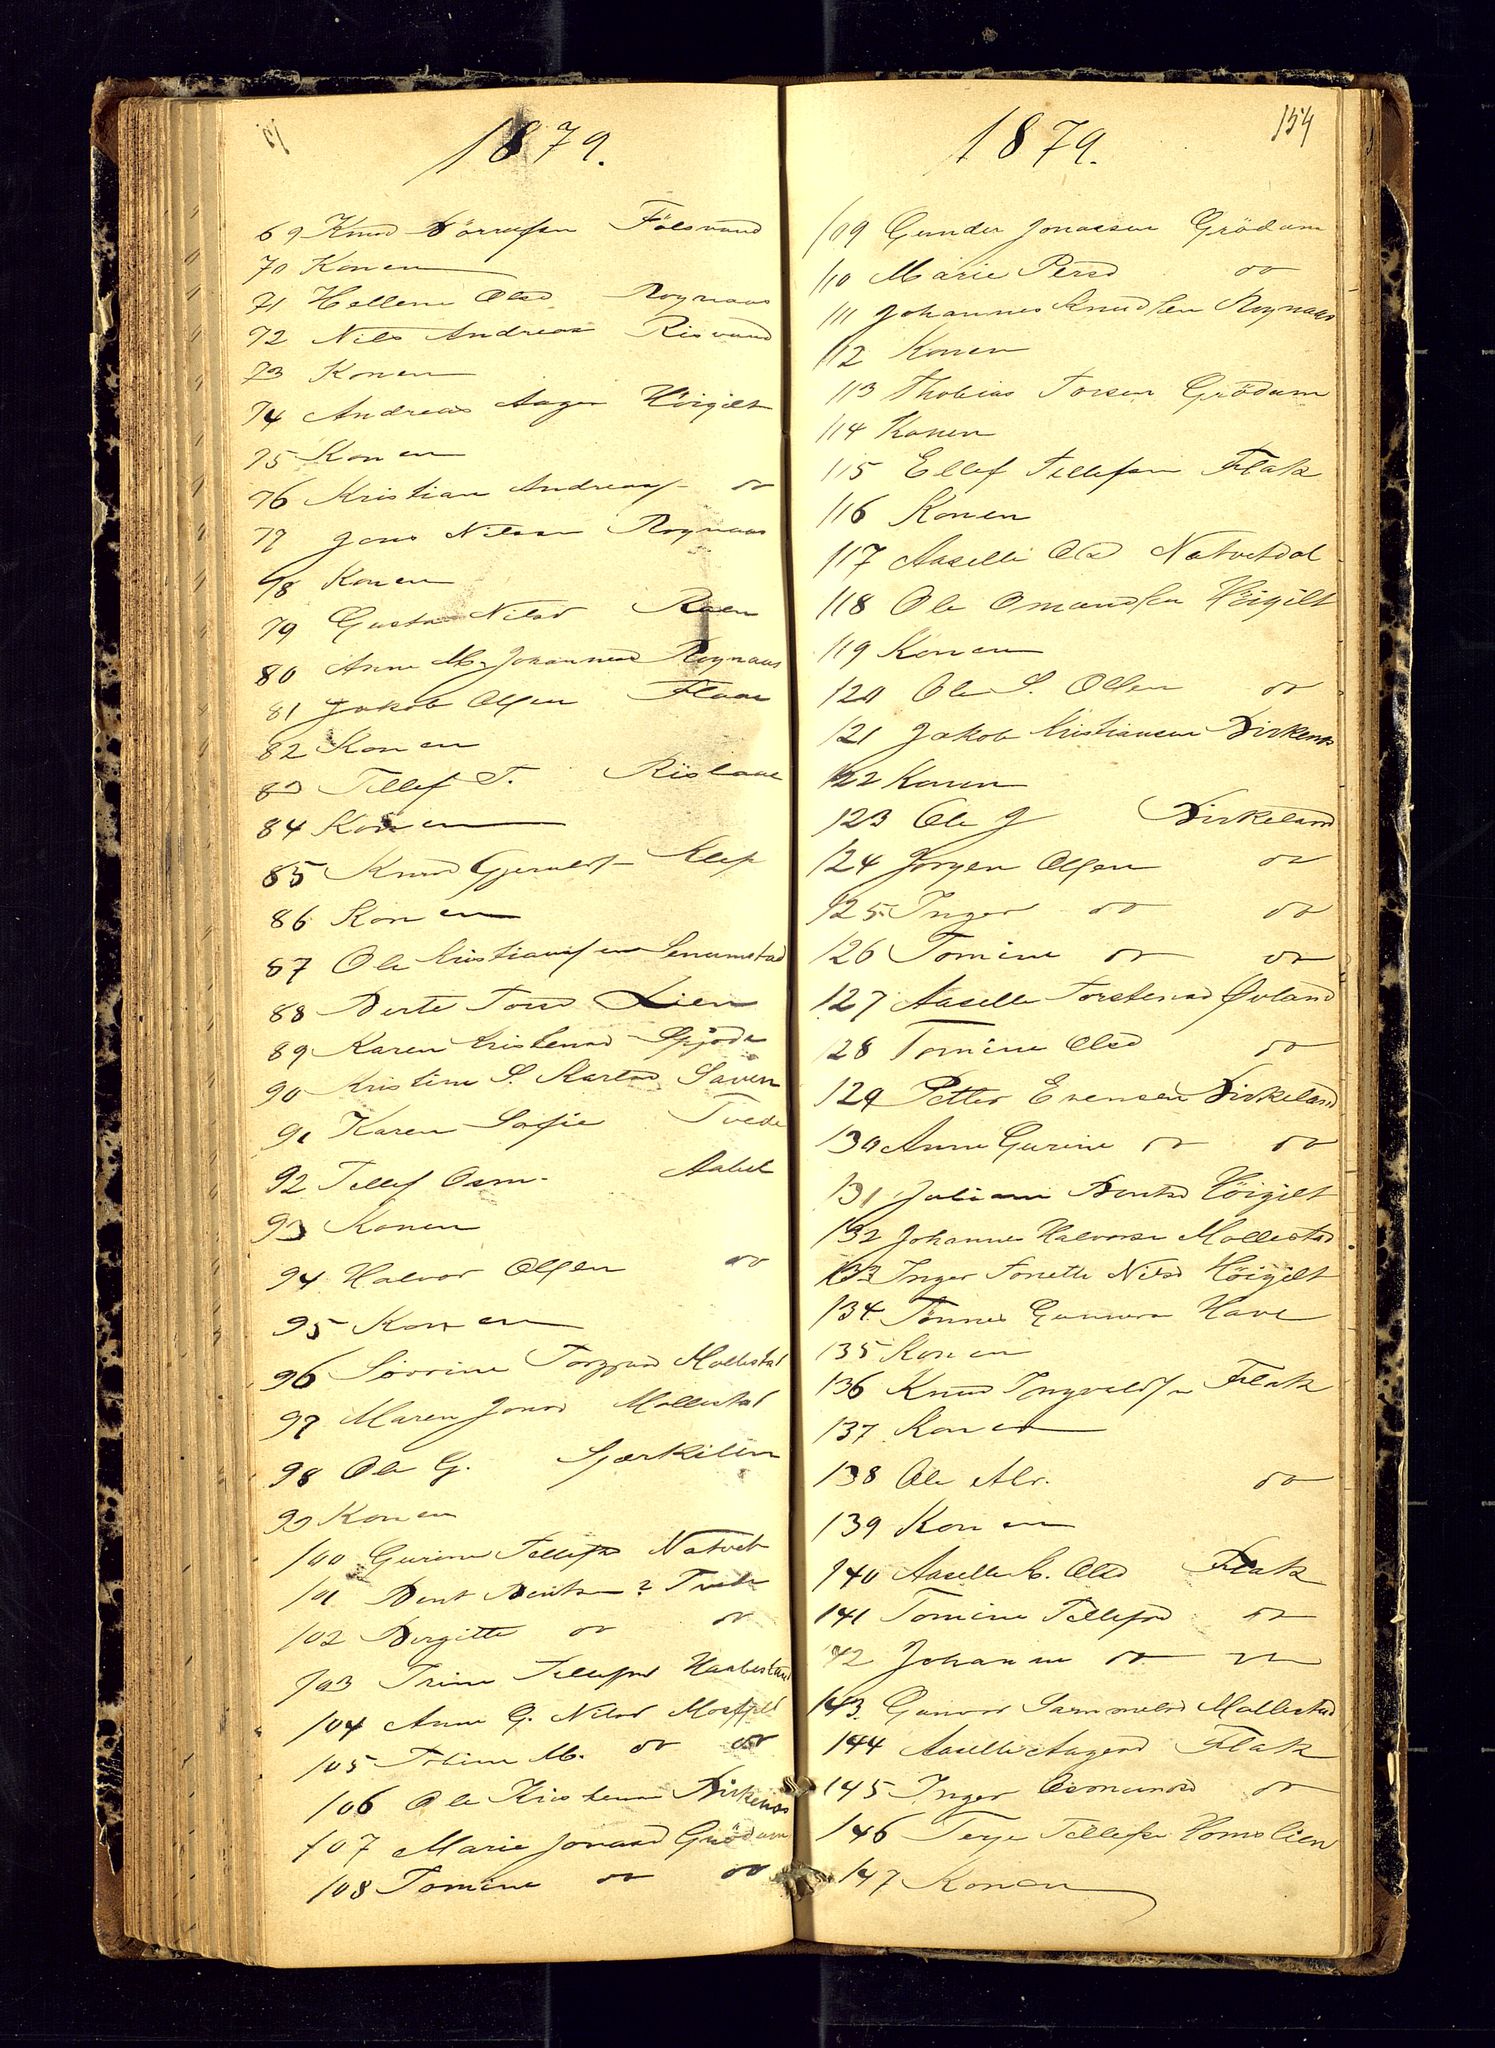 1879.
69 Knud Børresen Fölsvand
70 Konen
71 Hellene Olsd. Roynaas
72 Nils Andreas Risvand
73 Konen
74 Andreas Aagen Höigilt
75 Konen
76 Kristian Andreas do
77 Jens Nilsen Roynaas
78 Konen
79 Gusta Nilsd Raen
80 Anne M. Johannesd Roynaas
81 Jakob Olsen Flaae
82 Konen
83 Tellef T. Rislaae
84 Konen
85 Knud Gjeruldf Klep
86 Konen
87 Ole Kristiansen Senumstad
88 Berte Torsd Lien
89 Karen Kristensd
90 Kristine S. Larsd Saven
91 Karen Sofie Tvede
92 Tellef Osm. Aabel
93 Konen
94 Halvor Olsen do
95 Konen
96 Sørine Mollestad
97 Maren Jonsd Mollestad
98 Ole G.
99 Konen
100 Gurine Tellefsd Natvet
101 Bent Bentsen ? Tvede
102 Birgitte do do
103 Trine Tellefsd
104 Anne G. Nilsd Mosfjeld
105 M. do do
106 Ole Kristensen Birkenes
107 Marie Jonasd Grödum
108 Tomine do do
154
1879.
109 Gunder Jonassen Grödum
110 Marie Persd do
111 Johannes Knudsen Roynaas
112 Konen
113 Thobias Torsen Grödum
114 Konen
115 Ellef Tellefsen Flak
116 Konen
117 Aaselle Olsd Natvetdal
118 Ole Omundsen Höigilt
119 Konen
120 Ole S. Olsen do
121 Jakob Kristiansen Birkenes
122 Konen
123 Ole J Birkeland
124 Jörgen Olsen do
125 Inger do do
126 Tomine do do
127 Aaselle Torstensd Øvland
128 Tomine Olsd do
129 Petter Evensen Birkeland
130 Anne Gurine do do
131 Juliane Bentsd Höigilt
132 Johannes Halvorsen Mollestad
133 Inger Tonette Nilsd Höigilt
134 Tönnes Gunders Have
135 Konen
136 Knud Ingvaldsen Flak
137 Konen
138 Ole Alv. do
139 Konen
140 Aaselle C. Olsd Flak
141 Tomine Tellefsd do
142 Johanne do do
143 Gunvor Sammelsd Mollestad
144 Aaselle Aagesd Flak
145 Inger Osmundsd do
146 Terje Tellefsen Homslien
147 Konen